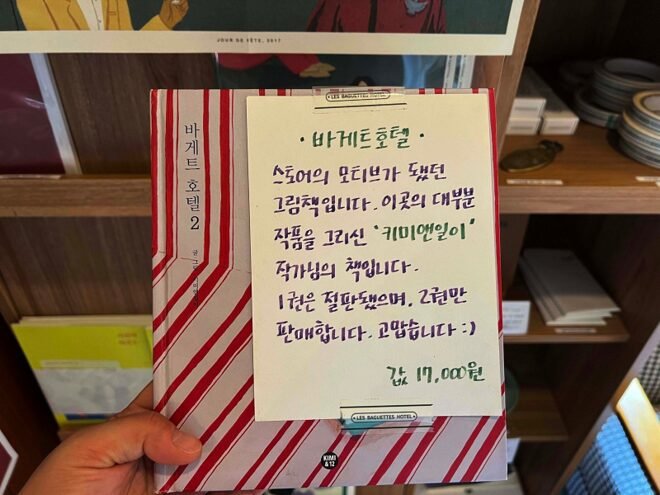 JOUR DE FÊTE, 2017
• LES BAGUETTES HOTEL •
바게트 호텔 2
• 바게트호텔 •
스토어의 모티브가 됐던
그림책입니다. 이곳의 대부분
작품을 그리신 '키미앤일이'
작가님의 책입니다.
1권은 절판됐으며, 2권만
판매합니다. 고맙습니다 :)
값 17,000원
• LES BAGUETTES HOTEL •
KIMI
& 12